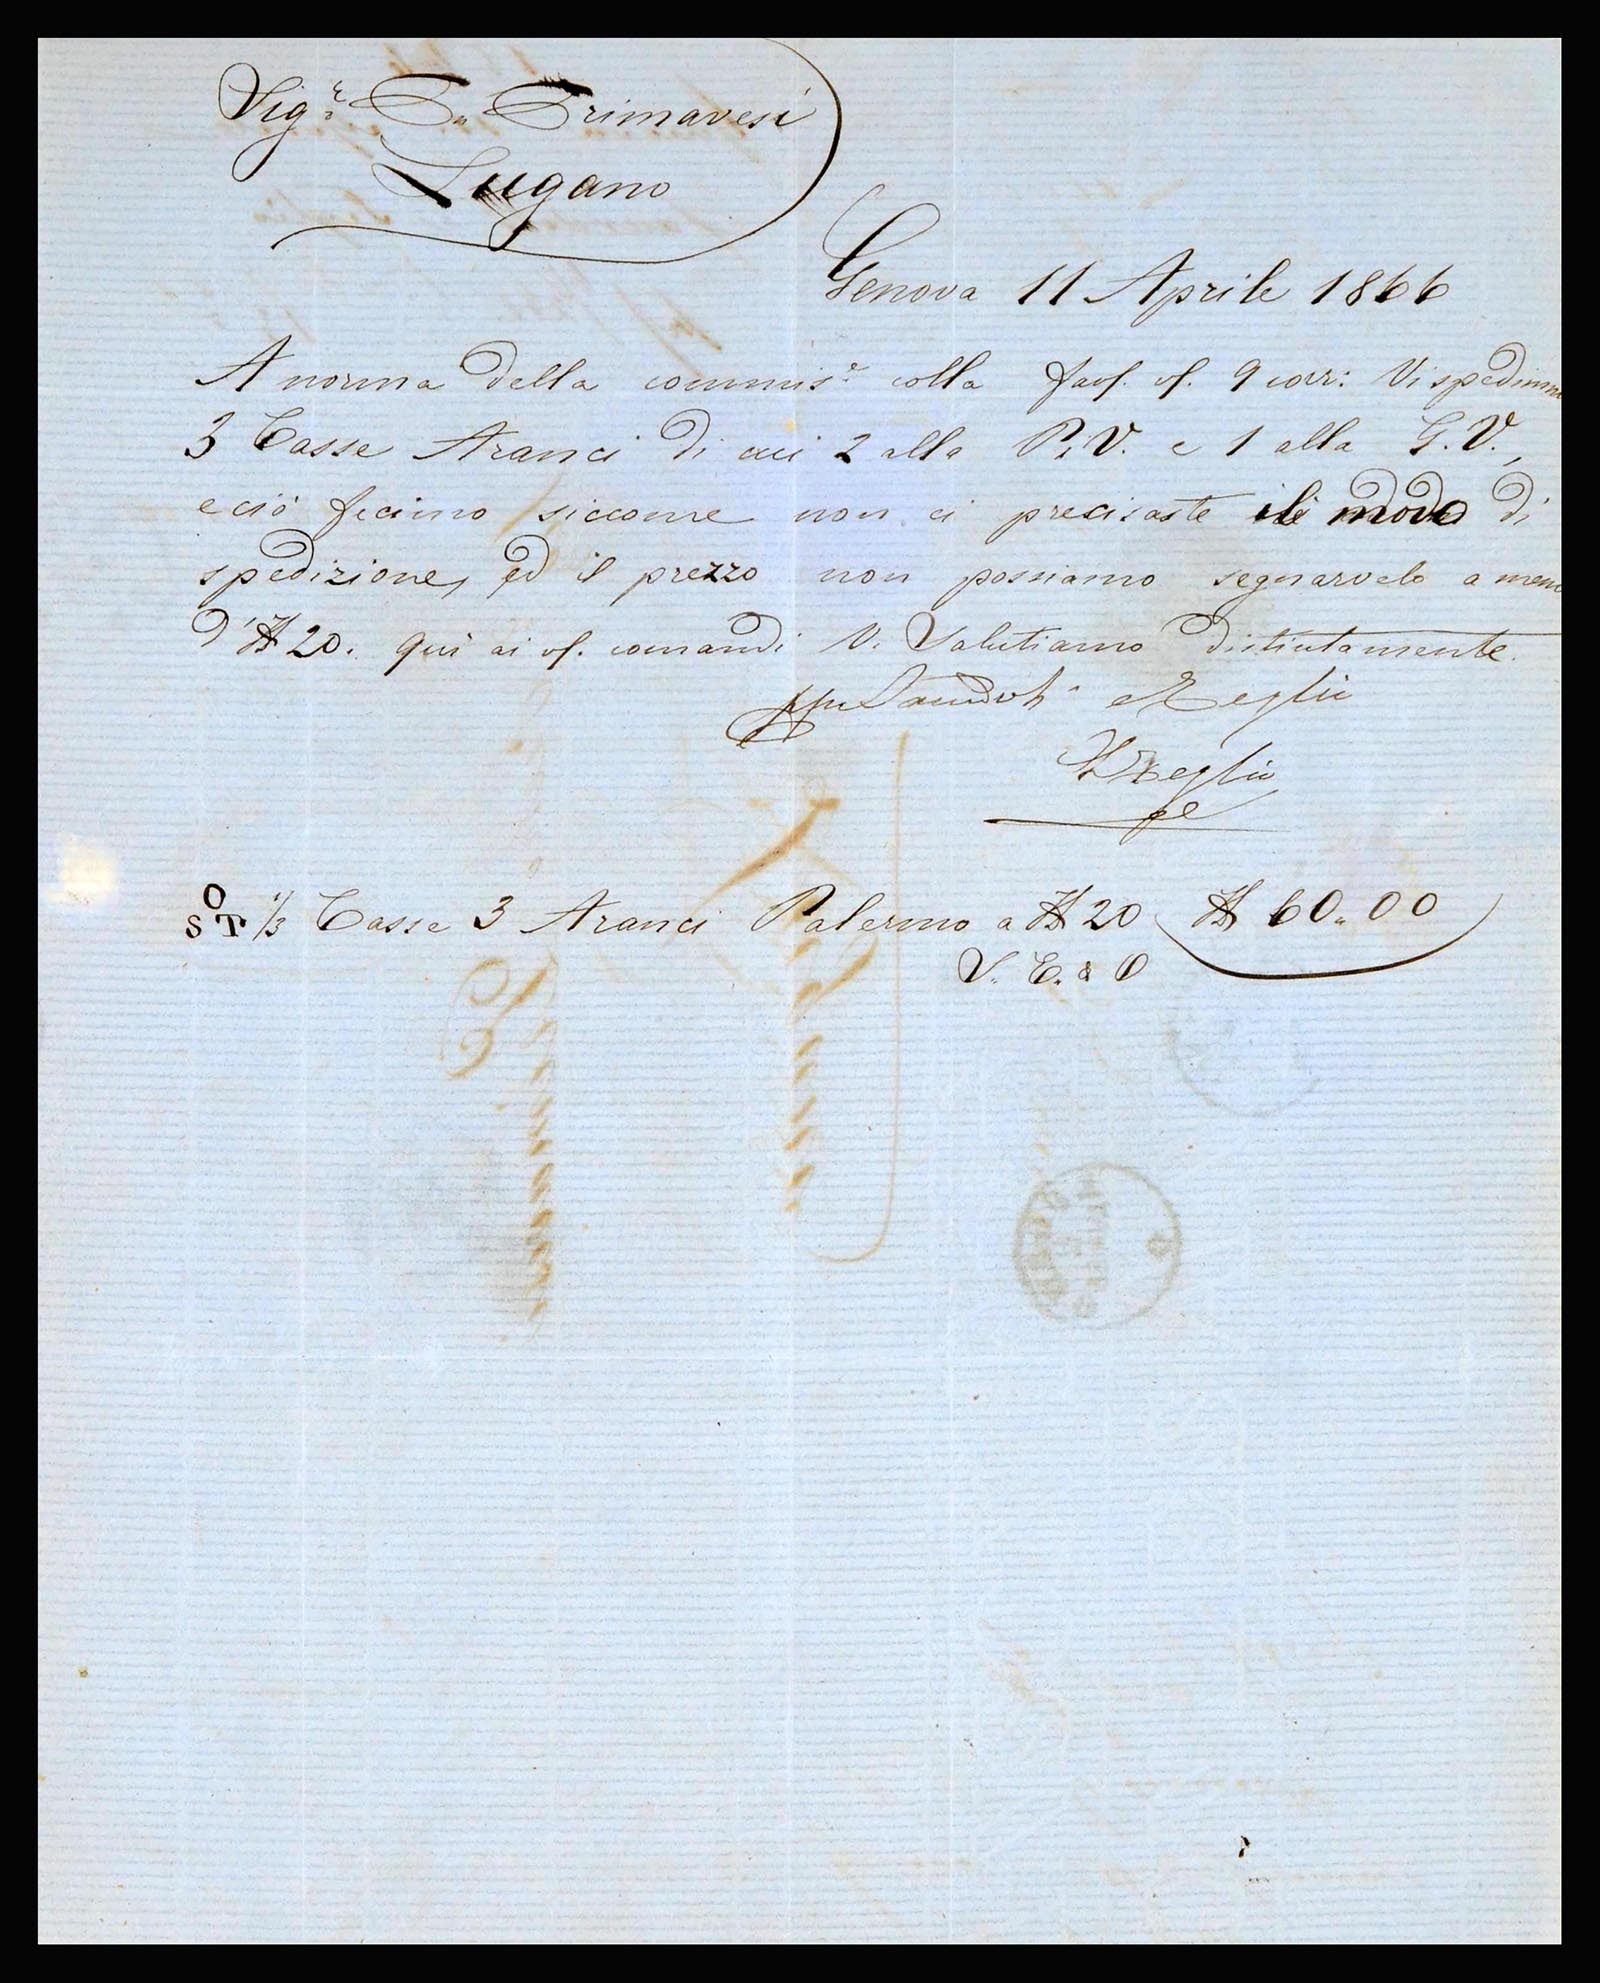 Sigr. Fr. Primavesi
Lugano
Genova 11 Aprile 1866
A norma della commise. colla fav. v. 9 corr: Vi spedimmo
3 Casse Aranci di cui 2 alla P.V. e 1 alla G.V.,
e ciò fecimo siccome non ci precisaste il modo di
spedizione, ed il prezzo non possiamo segnarvelo a meno
d' 20. Qui ai v. comandi V. Salutiamo distintamente.
e Reglio
Reglio
O
S T 1/3 Casse 3 Aranci Palermo a 20 60.00
S. E. & O